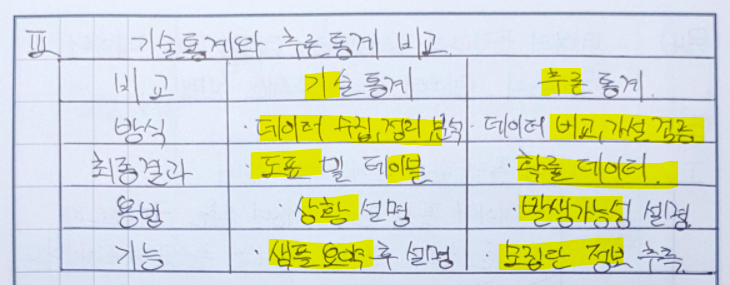 Ⅲ. 기술통계와 추론통계 비교.
비교 기술통계 추론통계.
방식 · 데이터 수집, 정리, 분석 · 데이터 비교, 가설 검증
최종결과 · 도표 및 테이블 · 확률 데이터.
용법 · 상황 설명 · 발생가능성 설명
기능 · 샘플 요약 후 설명 · 모집단 정보 추측.